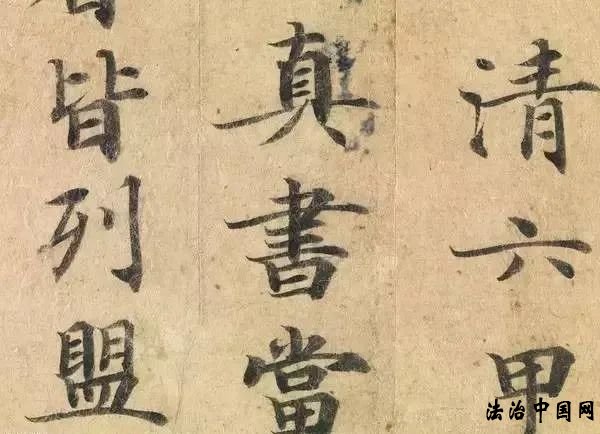 清六甲
真書當
者皆列盟
法治中国网